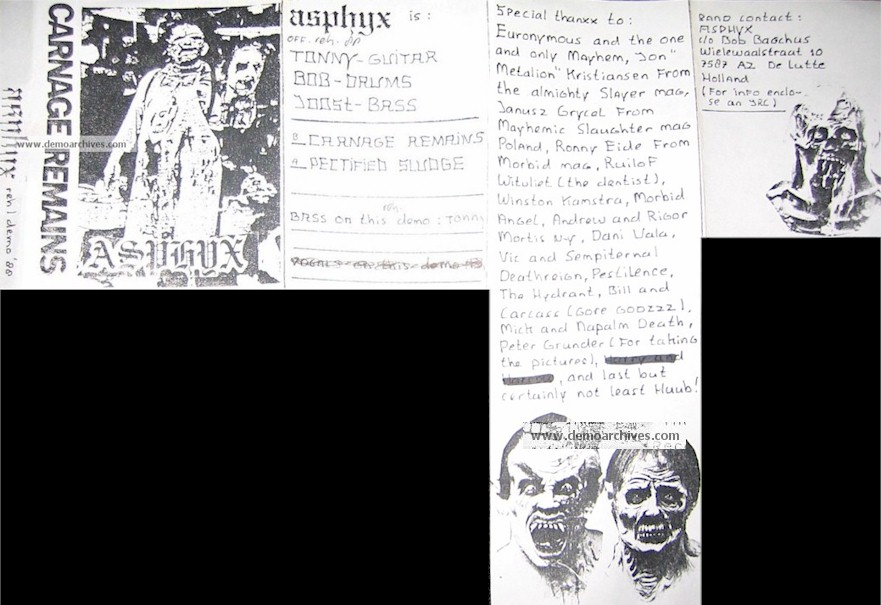 asphyx
reh / demo '88
CARNAGE REMAINS
www.demoarchives.com
ASPHYX
asphyx is:
OFF. reh.
TONNY-GUITAR
BOB-DRUMS
JOOST-BASS
CARNAGE REMAINS
PECTIFIED SLUDGE
reh.
BASS on this demo: TONNY
VOCALS on this demo
Special thanxx to:
Euronymous and the one
and only Mayhem, Jon "
Metalion" Kristiansen From
the almighty Slayer mag,
Janusz Grycel From
Mayhemic Slaughter mag
Poland, Ronny Eide From
Morbid mag, Ruilof
Wituliet (the dentist),
Winston Kamstra, Morbid
Angel, Andrew and Rigor
Mortis N-Y, Dani Vala,
Vic and Sempiternal
Deathreign, Pestilence,
The Hydrant, Bill and
Carcass (Gore GODZZZ),
Mick and Napalm Death,
Peter Grunder (For taking
the pictures),
, and last but
certainly not least Huub!
www.demoarchives.com
Rec
BAND contact:
ASPHYX
c/o Bob Bagchus
Wielewaalstraat 10
7587 AZ De Lutte
Holland
(For info enclo-
se an IRC)